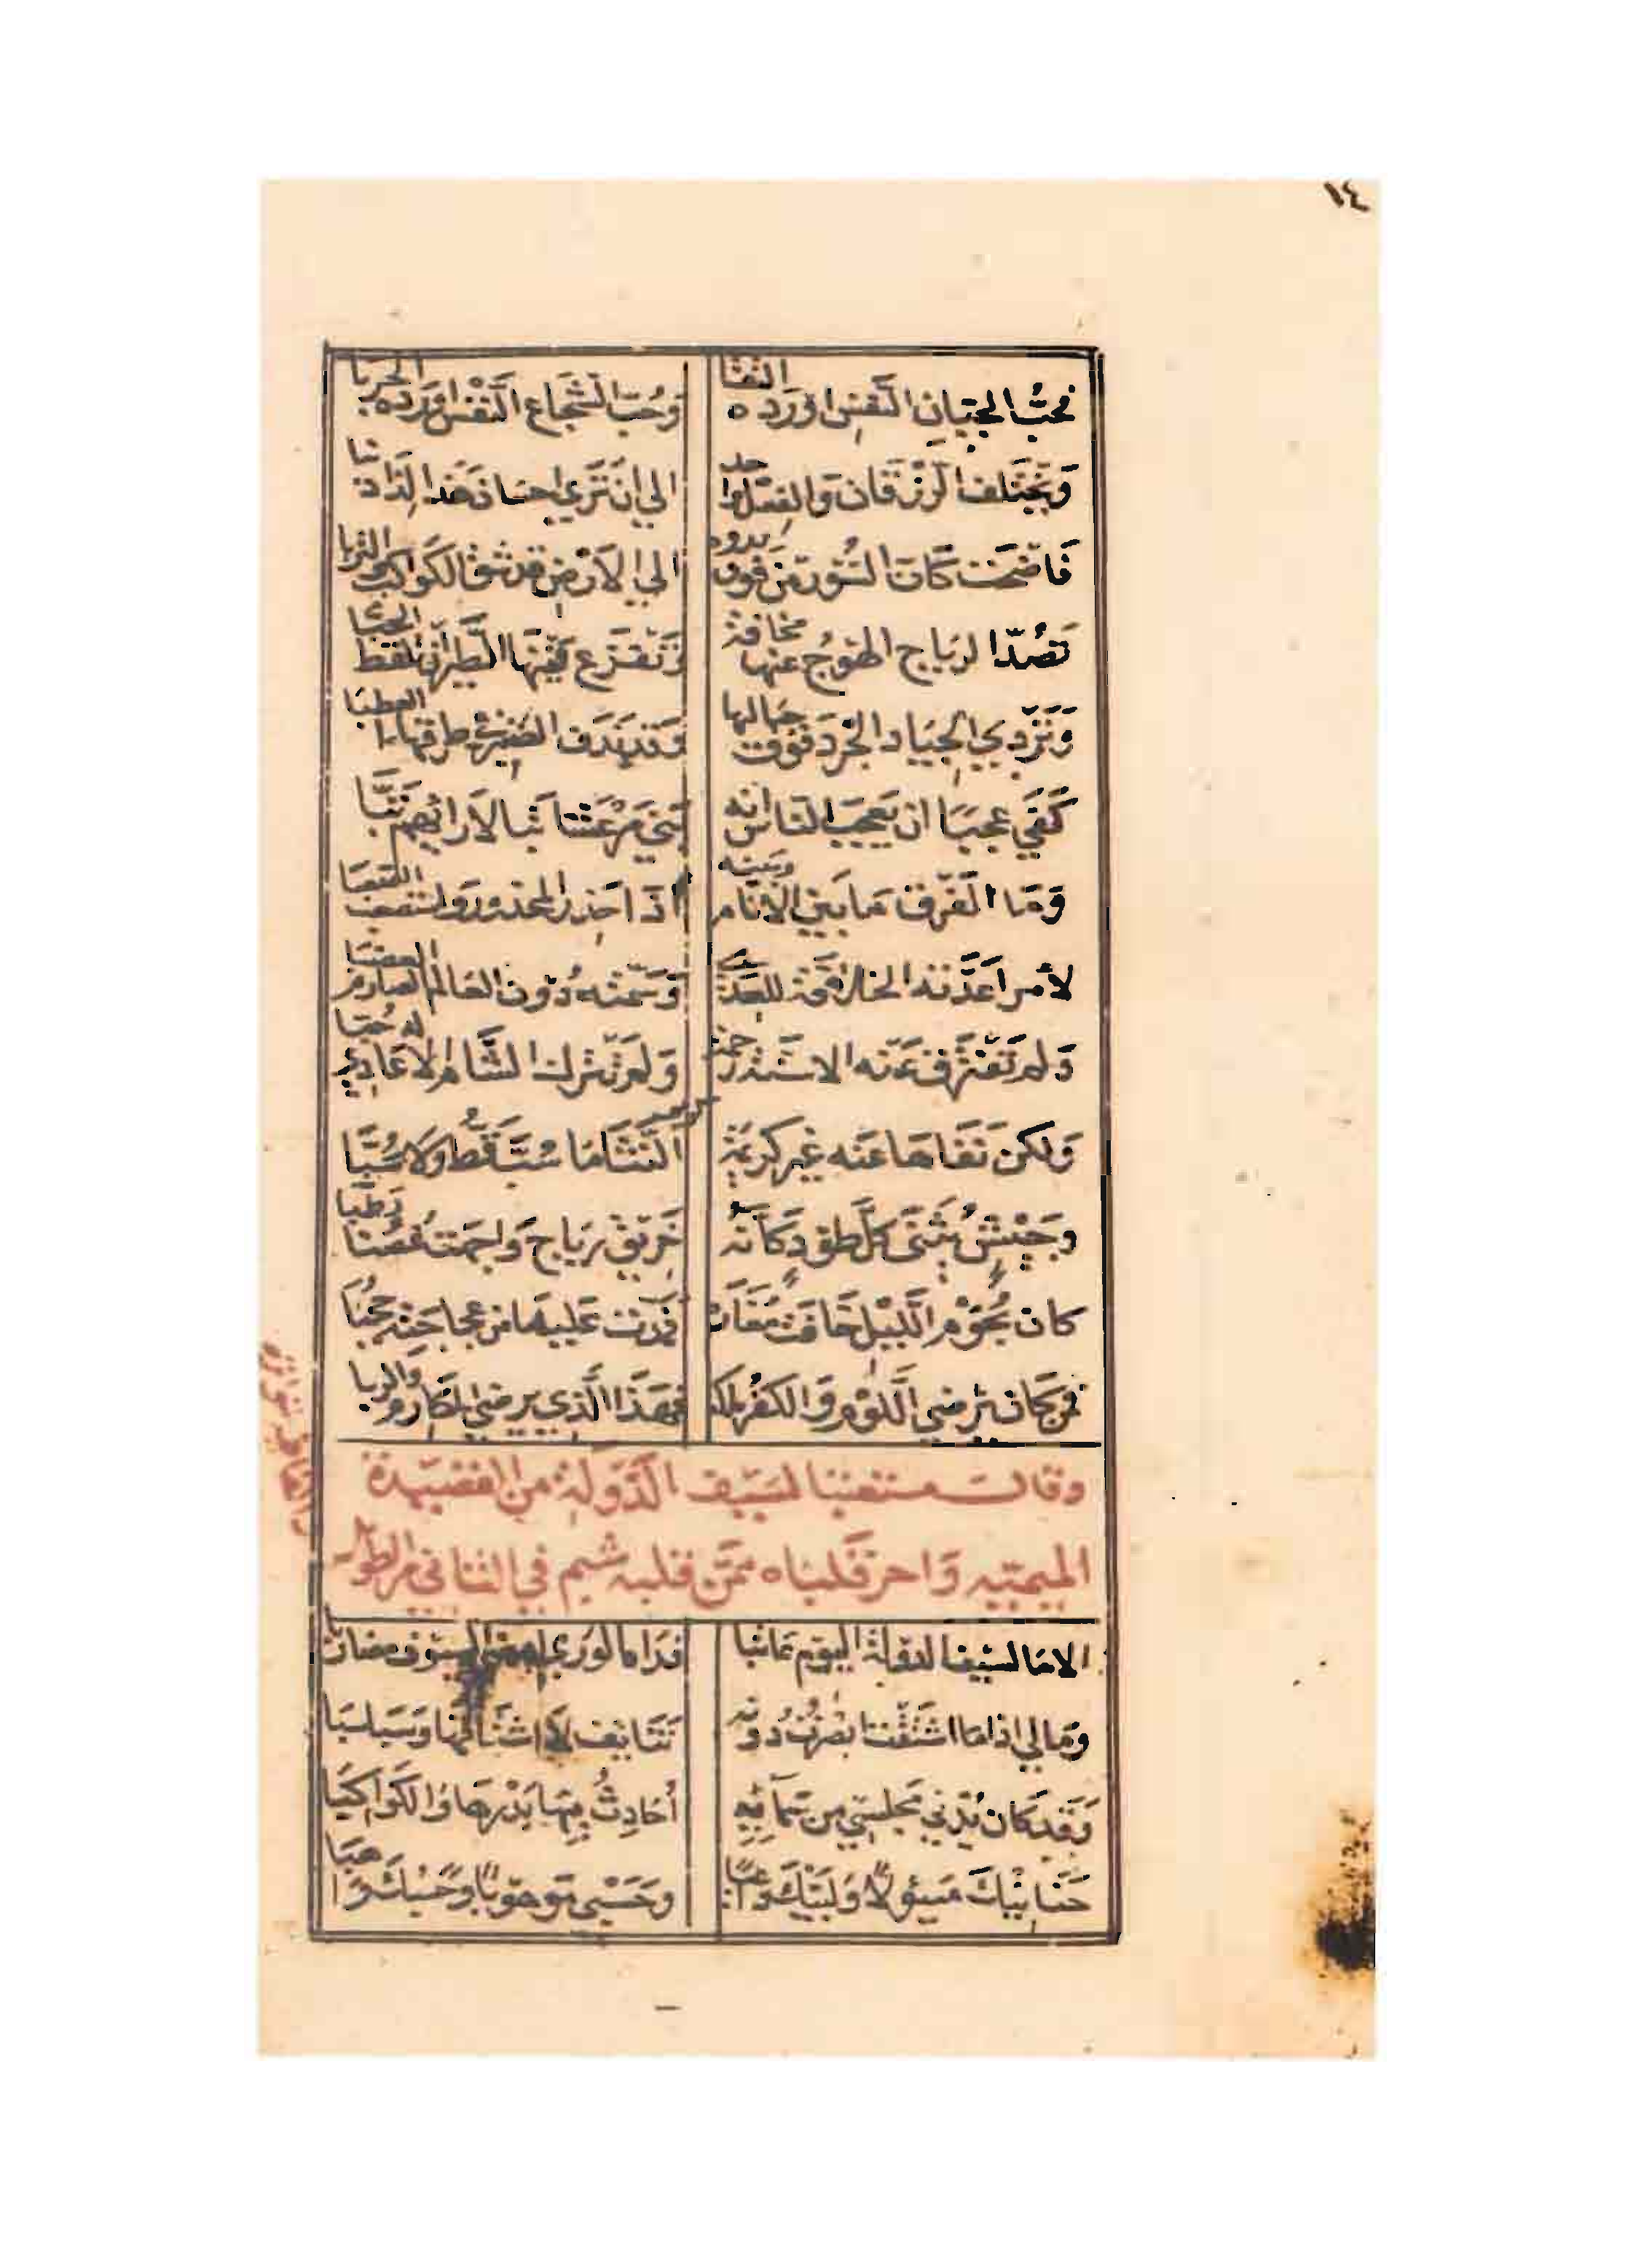 ١٤
فحبّ الجبان النفس اورده التقا وحُبّ الشجاع النفس اورده الحربا
وَيختلف الرزقان والفعل واحد الي ان تَرَي احسان هَذا لِذا ذنبا
فَاضحت كَان السُّور من فوق بدوه الي الارض قد شق الكواكب والتربا
تصُدّ الرياح الهوج عنها مخافة وَتفزع فيها الطير ان تلقط الحبّا
وَتَردي الجياد الجرد فوق جبالها وَقد ندف الصنبر في طرقها العطبا
كَفَي عجبَا ان يَعجبَ الناس انه بَني مَرْعشا تبا لاَرائهم تَبَّا
وَمَا الفَرق مَا بَين الانام وَبينه اذَا حَذر المحذور وَاستصعب الصعبا
لأمر اَعدَّته الخلافة للعِدَي وَسَمّته دُون العَالم الصارم العضبا
وَلم تَفترق عَنه الاسنة رَحمة وَلم يترك الشَّام الاعادي له حُبّا
وَلكن نَفَاهَا عَنه غير كريمَة كريم النثا مَا سُبَّ قَطُّ وَلا سَبَّا
وَجَيْشٌ يُثَنّى كُلّ طود كَأنّه خَريق رياح وَاجهت غُصنا رَطبا
كان نجُوْم اللَّيْل خَافت مُغَاره فمَدّت عَليهَا من عجاجته حجُبَا
فمن كان يُرضي اللَّوْم وَالكفر ملكه فهَذَا الَّذي يرضي المَكارم والربا
وقال مستعتبا لسَيف الدَّولة من القصيدة
الميمتيه وَاحر قَلبَاه ممّن قلبه شبم في الثاني من الطويل
الا مَا لسَيف الدولة اليوم عَاتبا فدَاه الوَرَي امضي السيوف مضاربا
وَمَا لي اذا مَا اشتَقْت ابصَرْتُ دونه تَنَائف لاَ اشتَاقها وَسَبَاسبَا
وَقَد كان يُدني مَجلسي من سَمَائِهِ أُحَادِثُ فِيهَا بَدْرهَا وَالكوَاكِبَا
حَنَانَيْكَ مَسئولاً وَلبَّيْكَ دَاعيًا وَحَسْبي مَوهوبًا وَحَسْبُكَ وَاهبَا